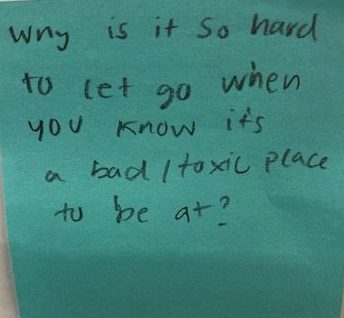 Why is it so hard
to let go when
you know it's
a bad/toxic place
to be at?